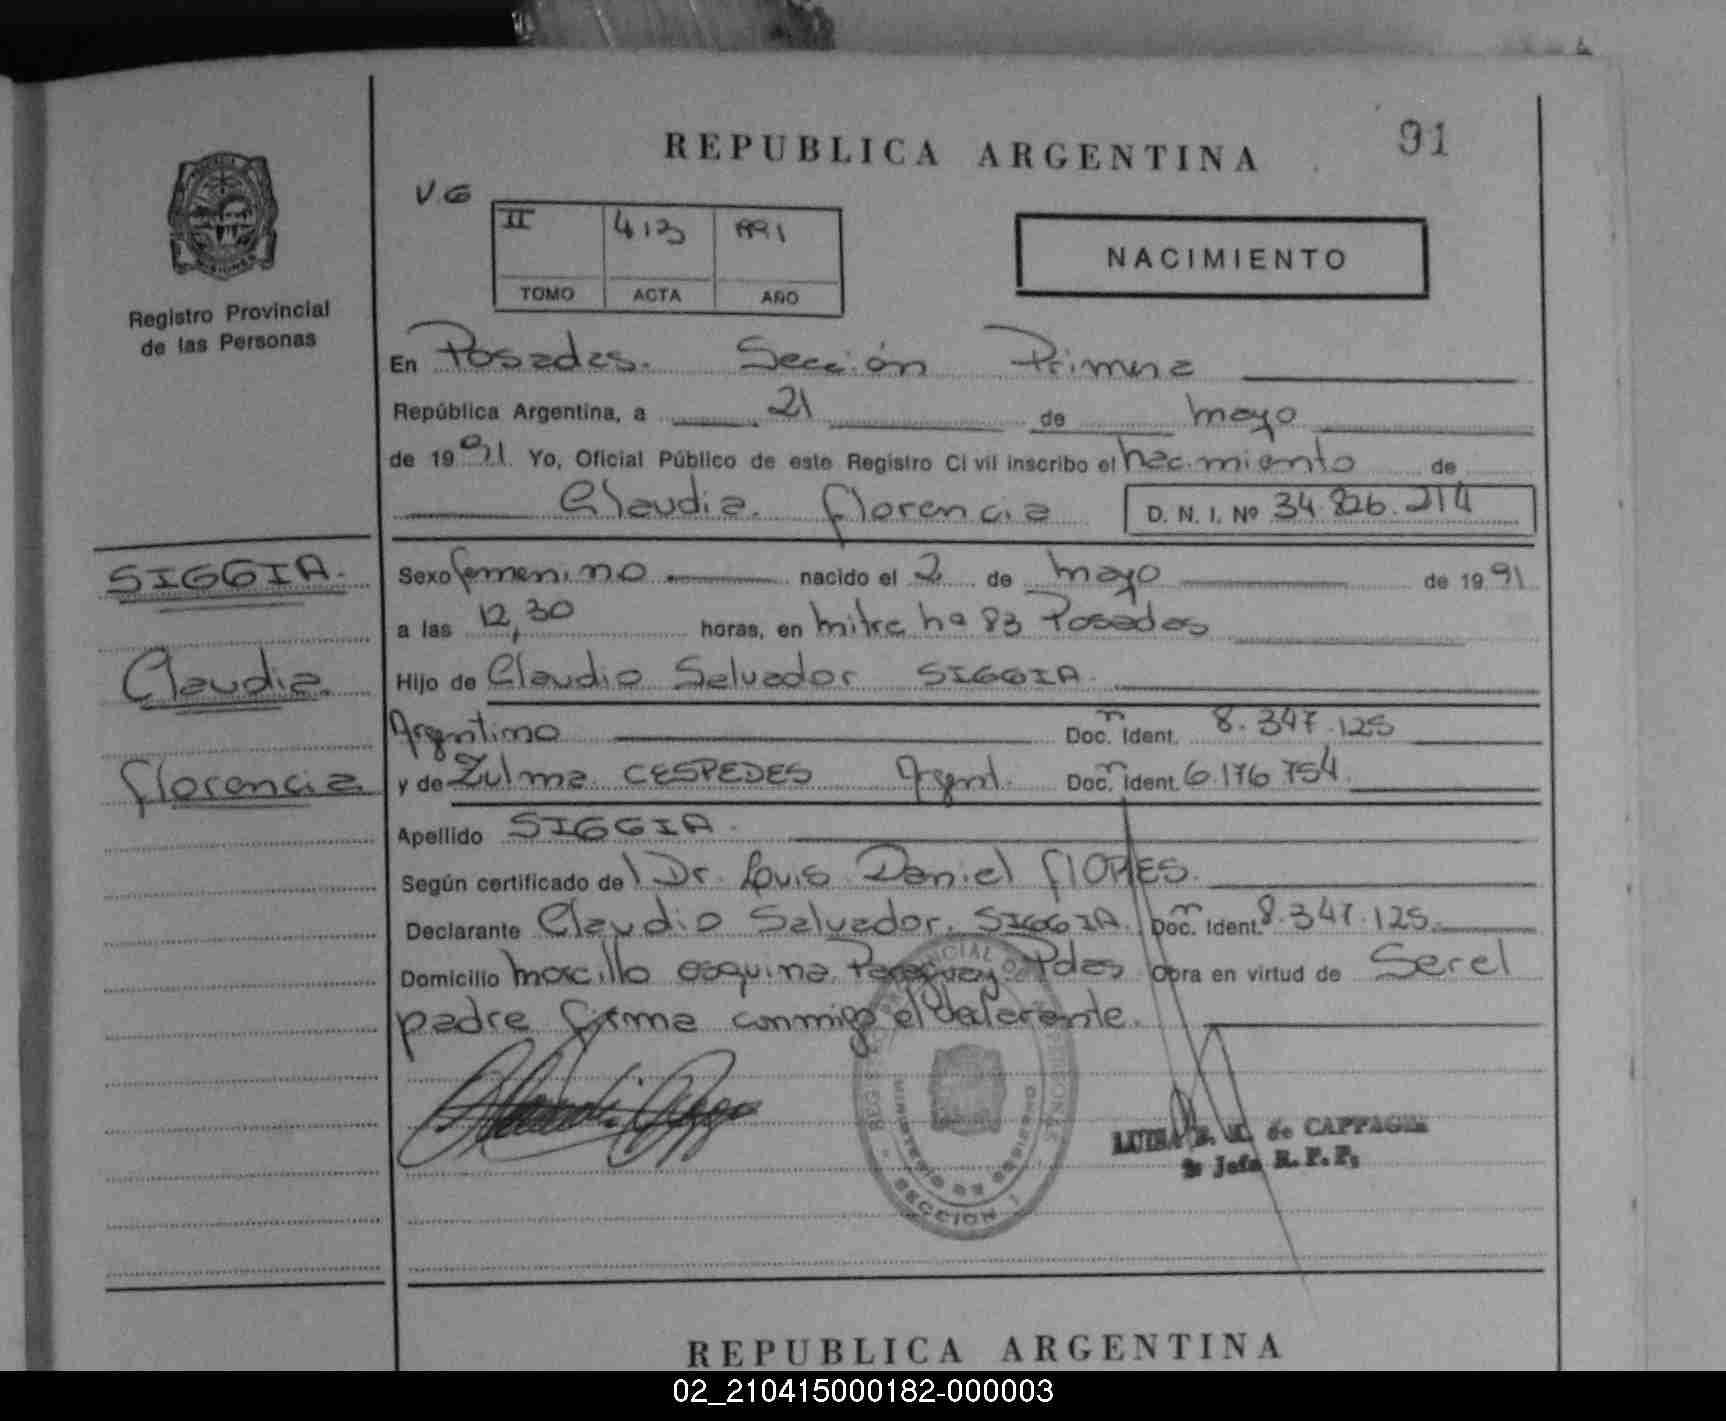 91
REPUBLICA ARGENTINA
V.G
II 413 991
TOMO ACTA AÑO
NACIMIENTO
MISIONES
Registro Provincial
de las Personas
En Posadas. Sección Primera
República Argentina, a 21 de mayo
de 1991 Yo, Oficial Público de este Registro Civil inscribo el nacimiento de
Claudia Florencia D. N. I. Nº 34.826.214
SIGGIA.
Claudia
Florencia
Sexo femenino nacido el 2 de mayo de 1991
a las 12,30 horas, en mitre nº 83 Posadas
Hijo de Claudio Salvador SIGGIA.
Argentino Doc. Ident. m 8.347.125
y de Zulma CESPEDES Argent. Doc. Ident. m 6.176.754.
Apellido SIGGIA.
Según certificado del Dr. Louis Daniel FLORES.
Declarante Claudio Salvador SIGGIA. Doc. Ident. m 8.347.125.
Domicilio morcillo esquina Paraguay Pdas Obra en virtud de Serel
padre firma conmigo el
REG. PROVINCIAL DE LAS PERSONAS
MINISTERIO DE GOBIERNO
SECCION 1
LUISA de CAPPAGLI
Jefa R. P. P.
REPUBLICA ARGENTINA
02_210415000182-000003